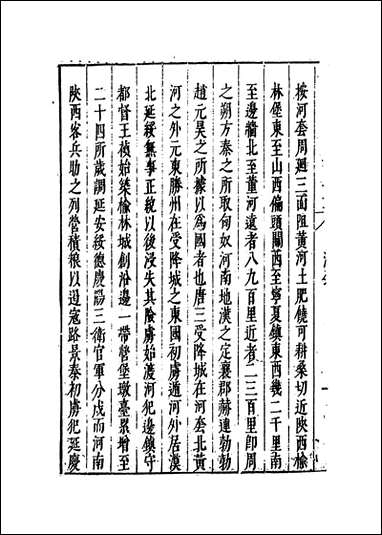 按河套周迴三面阻黃河土肥饒可耕桑切近陝西榆
林堡東至山西偏頭關西至寧夏鎮東西幾二千里南
至邊牆北至黃河遠者八九百里近者二三百里即周
之朔方秦之所取匈奴河南地漢之定襄郡赫連勃勃
趙元昊之所據以為國者也唐三受降城在河套北黃
河之外元東勝州在受降城之東國初虜遁河外居漠
北延綏無事正統以後浸失其險虜始渡河犯邊鎮守
都督王禎始築榆林城創沿邊一帶營堡墩臺累增至
二十四所歲調延安綏德慶陽三衛官軍分戍而河南
陝西客兵助之列營積粮以遏寇路景泰初虜犯延慶